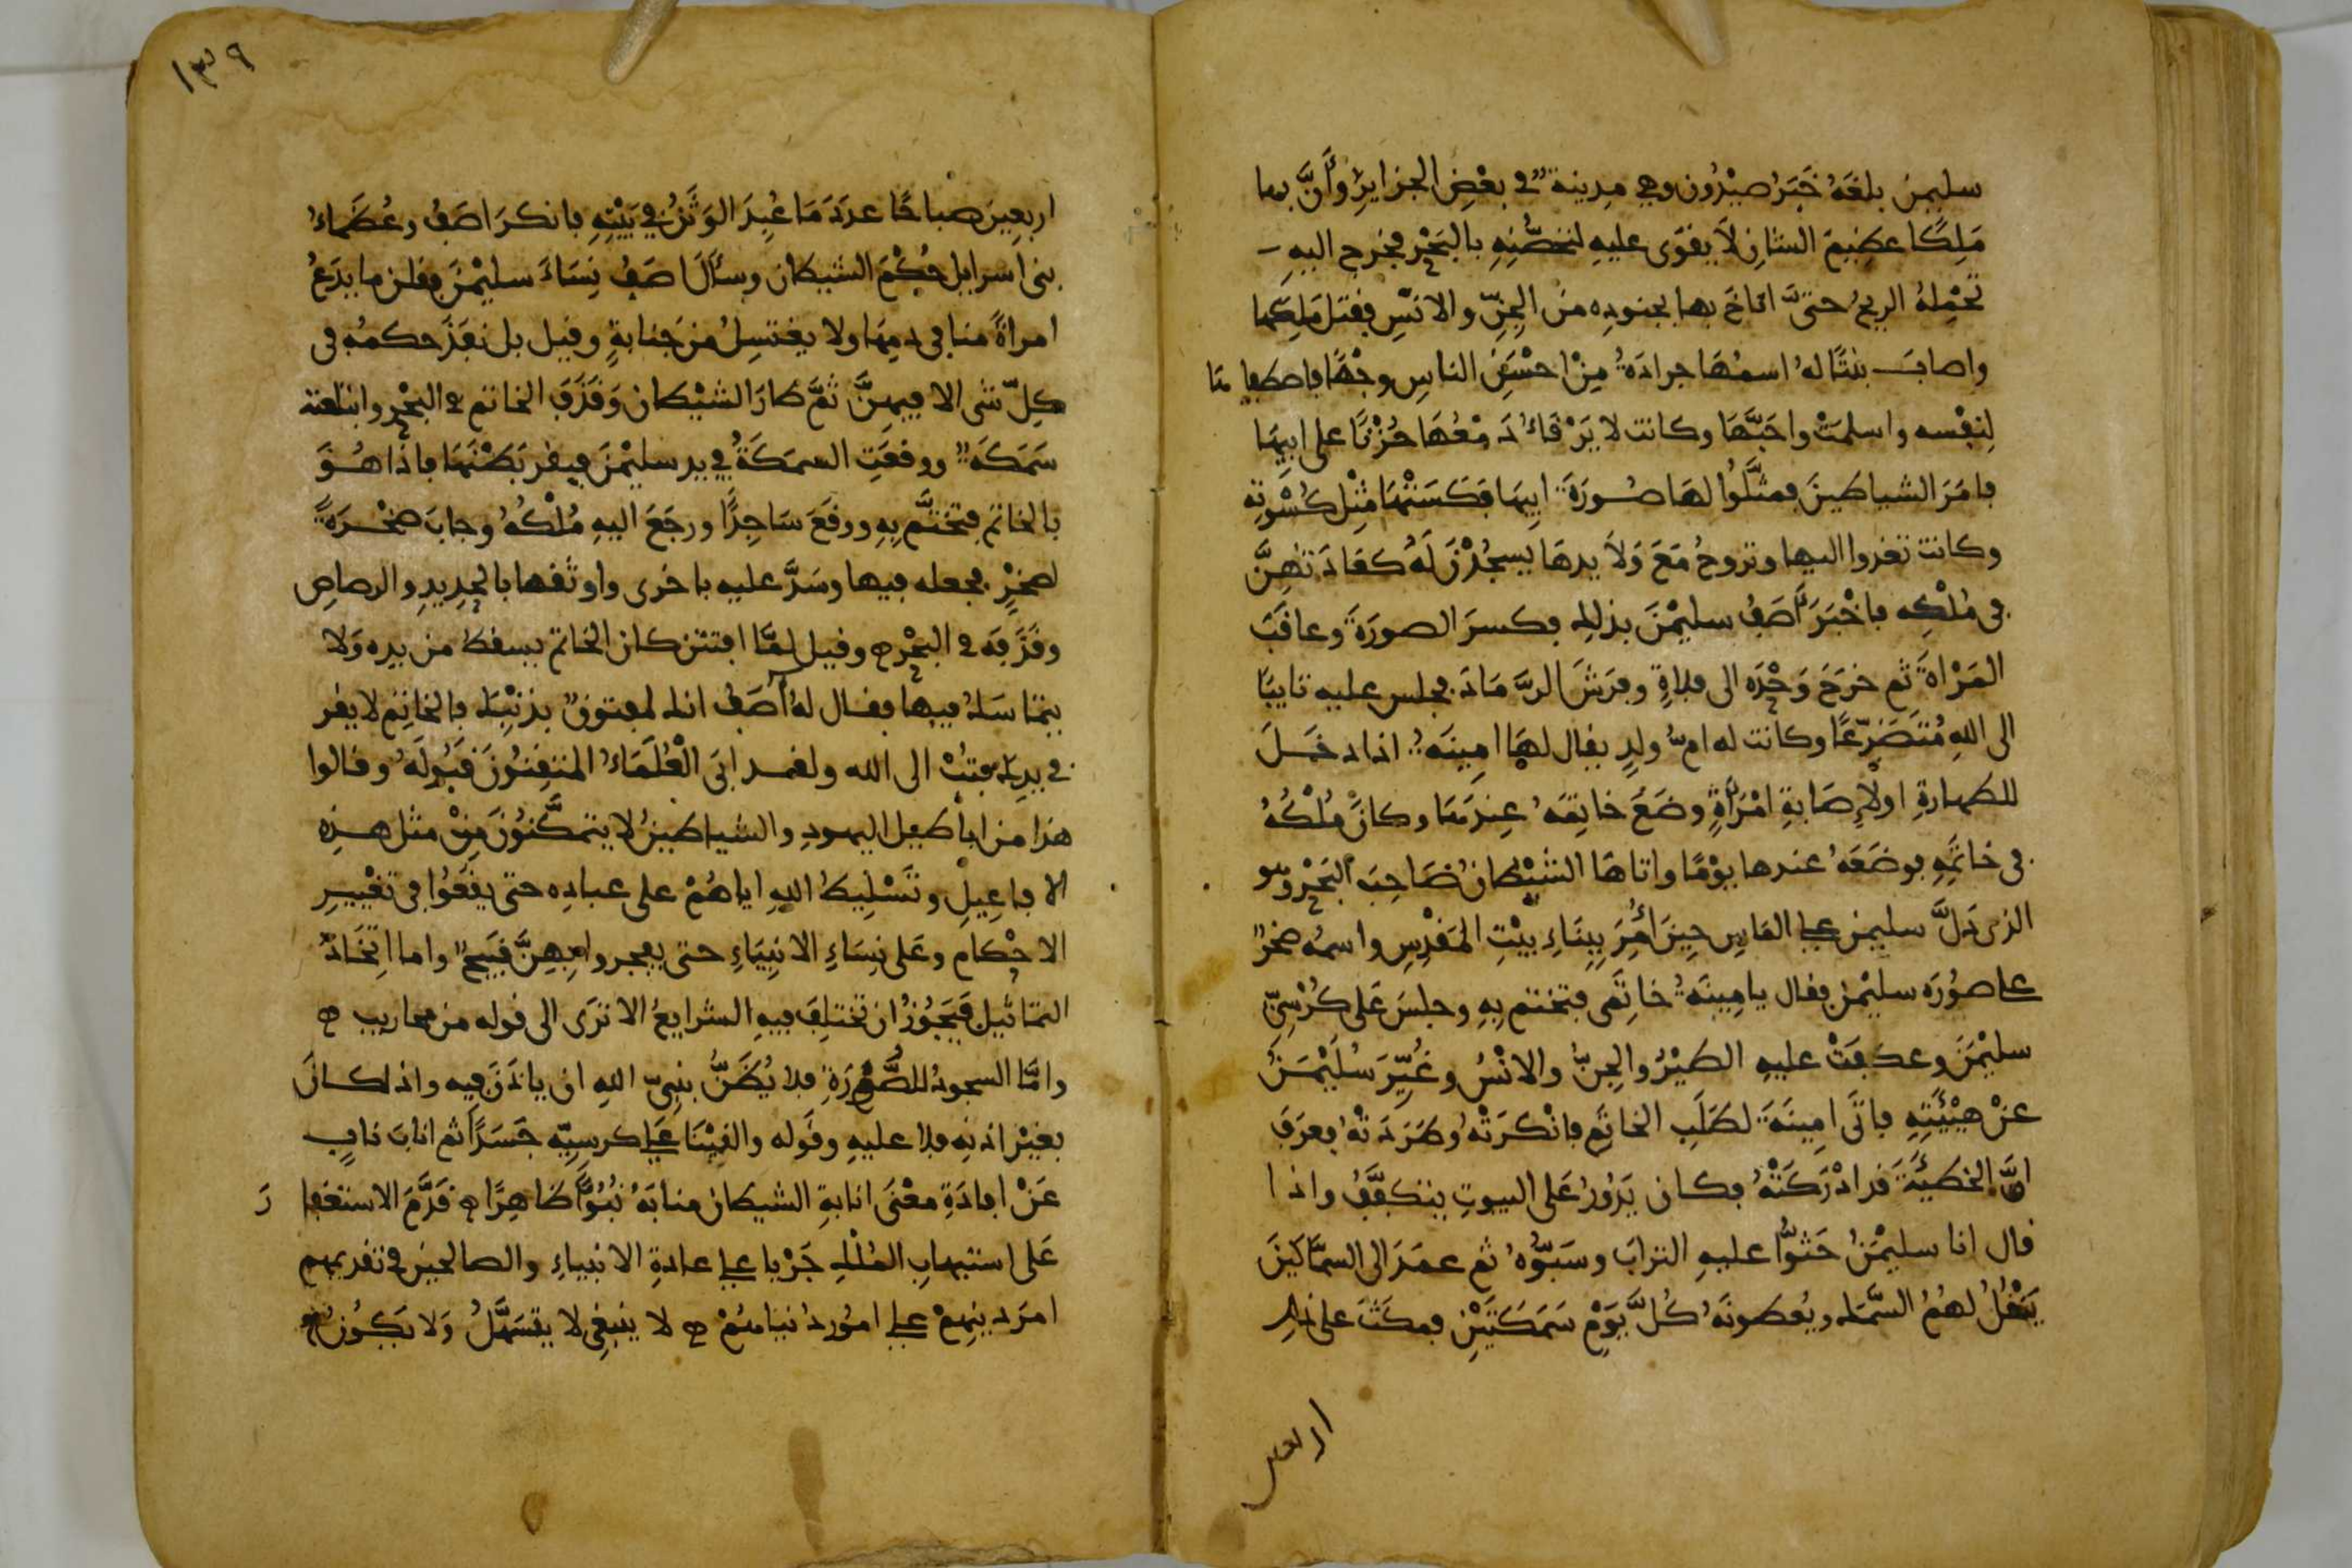 سليمن بلغه خَبَرُ صيْدُون وهي مدينة في بعْضِ الجزايرِ وأَنَّ بها
مَلِكًا عظيمَ الشانِ لَا يقوَى عليهِ لتحصُّنِهِ بالبَحْرِ فخرج اليهِ
تَحْمِلهُ الريحُ حتَّى اناخَ بها بجنودِه منَ الجِنِّ والانْسِ فقتل مَلِكَها
واصابَ بنْتًا لهُ اسمُهَا جرادَةُ مِنْ احْسَنِ الناسِ وجْهًا فاصطفاها
لِنفْسه واسلمتْ واحَبَّهَا وكانت لا يَرْقَاُ دَمْعُهَا حُزْنًا على ابيهَا
فامَرَ الشياطينَ فمثَّلُوا لهَا صُورَةَ ابيهَا فكَسَتْهَا مثْل كُسْوتِه
وكانت تغدوا اليها وتروحُ مَعَ وَلَايدِهَا يسجُدْنَ لَهُ كعَادَتهِنَّ
في مُلْكِه فاخْبَرَ آصَفُ سليمْنَ بذلك فكسرَ الصورَةَ وعاقَبَ
المَرْاةَ ثم خرَجَ وَحْدَه الى فلاةٍ وفرَشَ الرَّمَادَ فجلس عليه تايبًا
الى اللهِ مُتَضَرِّعًا وكانت له امُّ ولدٍ يقال لهَا امِينَةُ اذا دخَلَ
للطهارةِ اولِإصَابةِ امْرَأَةٍ وضَعَ خاتمَهُ عندَهَا وكانَ مُلْكُهُ
في خاتمِهِ فوضَعَهُ عندها يوْمًا واتاهَا الشيْطانُ صَاحِبُ البَحْرِ وهو
الذى دَلَّ سليمن على الماس حِينَ أُمِرَ ببِنَاءِ بيْتِ المَقْدِسِ واسمُه صخرٌ
على صُورَه سليْمن فقال يا امِينَةُ خاتَمى فتختم بِهِ وجلسَ عَلى كُرْسِيِّ
سليْمَنَ وعكفَتْ عليهِ الطيْرُ والجِنُّ والانْسُ وغُيِّرَ سُلَيْمَنُ
عنْ هيْئتِهِ فاتَى امِينَةَ لطَلَبِ الخاتَمِ فانْكرَتْهُ وطرَدَتْهُ فعرَفَ
انَّ الخطيئَةَ قد ادْرَكَتْهُ فكان يَدُورُ عَلى البيوتِ يتكفَّفُ واذا
قال انا سليمْنُ حَثوْا عليهِ الترابَ وسَبُّوهُ ثم عمَدَ الى السمَّاكينَ
يَنْقُلُ لهُمُ السَّمَك ويُعطونَهُ كُلَّ يَوْمٍ سَمَكتَيْنِ فمكَثَ على ذلك
اربعين
١٣٩
اربعِينَ صباحًا عدَدَ مَا عُبِدَ الوَثَنُ في بَيْتِهِ فانكرَ اصَفُ وعُظَمَاءُ
بنى اسرايل حُكْمَ الشيطان وسأَلَ اصَفُ نِسَاءَ سليْمْنَ فقلن ما يدَعُ
امراةً منا في دمِهَا ولا يغتسِلُ منْ جَنابةٍ وقيل بل نفَذَ حكمُه في
كلِّ شى الا فيهِنَّ ثمَّ طارَ الشيْطان وَقَذَفَ الخاتم في البَحْرِ وابتلعته
سَمَكَةٌ ووقعَتِ السمَكَةُ في يد سليْمْنَ فبقر بَطْنَهَا فاذَا هُوَ
بالخاتمِ فتختَّمَ بِهِ ووقَعَ سَاجِدًا ورجَعَ اليهِ مُلْكُهُ وجابَ صَخْرَةً
لصَخْرٍ فجعله فيها وسَدَّ عليه باخرى واوثقها بالحديدِ والرصاصِ
وقَذَفَه في البَحْرِ وقيل لمَّا افتتن كان الخاتم يسقط من يده وَلا
يتمَاسَكُ فيها فقال لهُ آصَفُ انك لمفتونٌ بذنْبِك فالخاتِمُ لا يقر
في يدِك فتُبْ الى الله ولقد ابَى الْعُلَمَاءُ المتقِنُونَ قبُولَهُ وقالوا
هذا من اباطيل اليهودِ والشياطينُ لا يتمكَّنُونَ مِنْ مثل هذه
الافاعِيلِ وتَسْلِيطُ اللهِ اياهُمْ على عباده حتى يقَعُوا في تغْييرِ
الاحْكام وعَلى نِسَاءِ الانبِيَاءِ حتى يفجروا بِهِنَّ قبيحٌ واما اتِّخَاذُ
التماثيلِ فَيَجُوزُ ان تختلِفَ فيهِ الشرايعُ الا ترَى الى قوله من محاريب
وامَّا السجودُ للصُّورَةِ فلا يُظَنُّ بنبِىِّ اللهِ ان ياذنَ فيه واذا كانَ
بغيْر اذنِه فلا عليهِ وقَوله والقيْنَا على كرسيِّه جَسَدًا ثم انابَ نابٍ
عَنْ افادَةِ معْنَى انابةِ الشيطان منابَهُ نُبُوًّا ظاهِرًا قَدَّمَ الاستغفارَ
عَلى استيهابِ المُلْكِ جَرْيا على عادةِ الانبياءِ والصالحينَ في تقديمهم
امرَ دينِهمْ على امُور دُنيامُهُمْ لا ينبغِى لا يتسَهَّلُ وَلا يَكُونُ